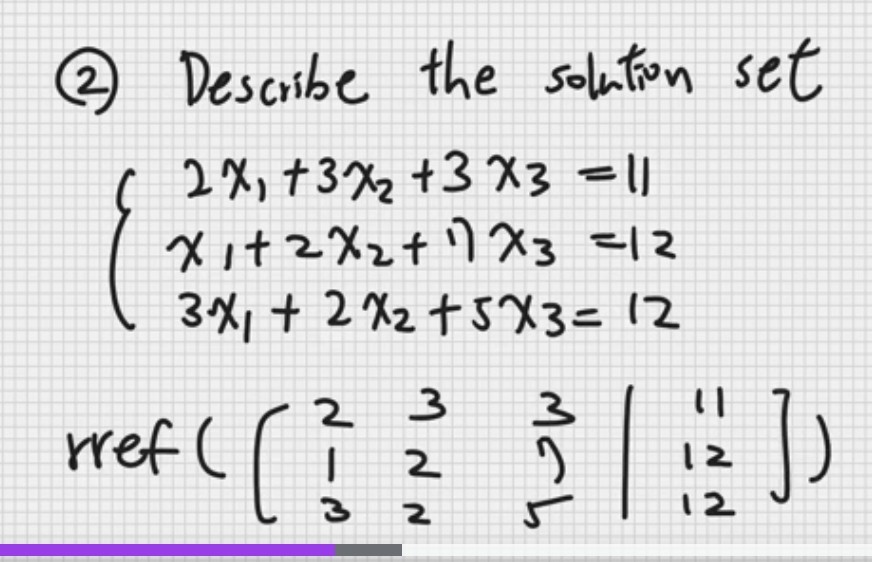 ② Describe the solution set
2x₁ + 3x₂ + 3x₃ = 11
x₁ + 2x₂ + 7x₃ = 12
3x₁ + 2x₂ + 5x₃ = 12
rref ( [ 2 3 3 | 11
1 2 7 | 12
3 2 5 | 12 ] )